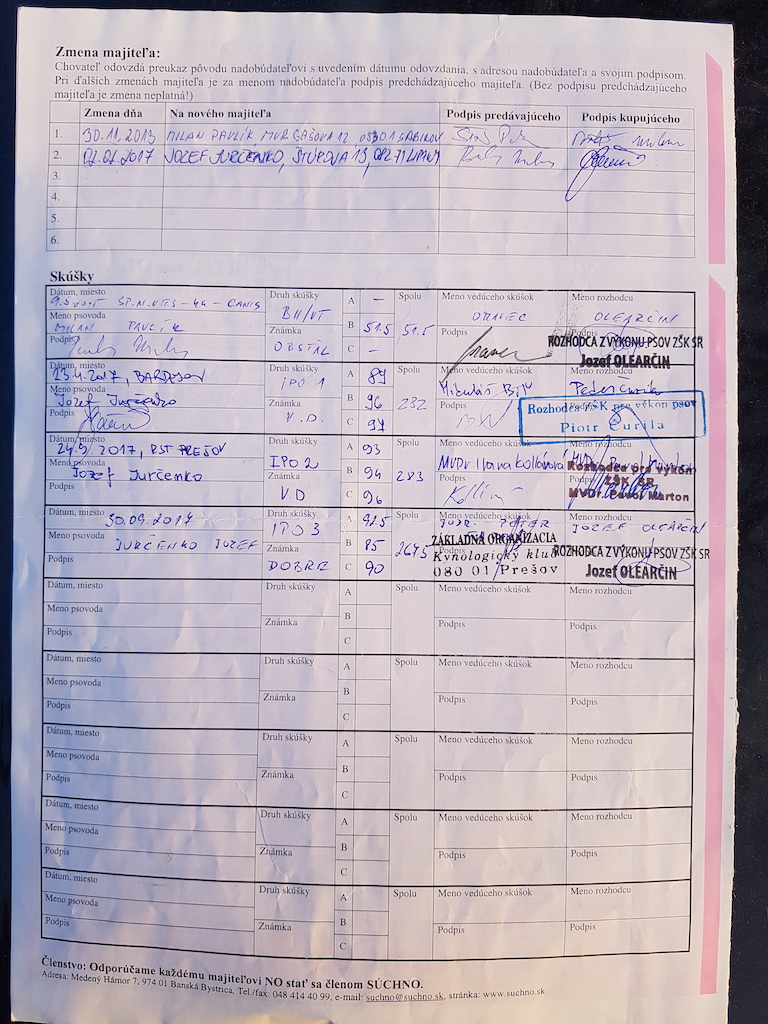 Zmena majiteľa:
Chovateľ odovzdá preukaz pôvodu nadobúdateľovi s uvedením dátumu odovzdania, s adresou nadobúdateľa a svojim podpisom.
Pri ďalších zmenách majiteľa je za menom nadobúdateľa podpis predchádzajúceho majiteľa. (Bez podpisu predchádzajúceho
majiteľa je zmena neplatná!)
Zmena dňa Na nového majiteľa Podpis predávajúceho Podpis kupujúceho
1. 30.11.2013 MILAN PAVLÍK 12 08301 SABINOV
2. 2017 JOZEF JURČENKO, ŠTÚROVA 13, 082 71 LIPANY
3.
4.
5.
6.
Skúšky
Dátum, miesto Druh skúšky A – Spolu Meno vedúceho skúšok Meno rozhodcu
CANIS BH/VT ORAVEC OLEARČIN
Meno psovoda Známka B 51.5 51.5 Podpis Podpis
MILAN PAVLÍK OBSTÁL
Podpis C –
ROZHODCA Z VÝKONU PSOV ZŠK SR
Jozef OLEARČIN
Dátum, miesto Druh skúšky A 89 Spolu Meno vedúceho skúšok Meno rozhodcu
13.4.2017, BARDEJOV IPO 1
Meno psovoda Známka B 96 232 Podpis
Jozef Jurčenko V.D.
Podpis C
Rozhodca ZŠK pre výkon psov
Piotr Čurila
Dátum, miesto Druh skúšky A 93 Spolu Meno vedúceho skúšok Meno rozhodcu
2017, PREŠOV IPO 2 MVDr Ivana Kollárová
Meno psovoda Známka B 94 283 Podpis
Jozef Jurčenko V.D
Podpis C 96
Rozhodca pre výkon
ZŠK SR
MVDr. Pavol Marton
Dátum, miesto Druh skúšky A 92.5 Spolu Meno vedúceho skúšok Meno rozhodcu
30.09.2017 IPO 3 JUDr. JOZEF OLEARČIN
Meno psovoda Známka B 85 267.5 Podpis
JURČENKO JOZEF DOBRE
Podpis C 90
ZÁKLADNÁ ORGANIZÁCIA
Kynologický klub
080 01 Prešov
ROZHODCA Z VÝKONU PSOV ZŠK SR
Jozef OLEARČIN
Dátum, miesto Druh skúšky A Spolu Meno vedúceho skúšok Meno rozhodcu
Meno psovoda Známka B Podpis Podpis
Podpis C
Dátum, miesto Druh skúšky A Spolu Meno vedúceho skúšok Meno rozhodcu
Meno psovoda Známka B Podpis Podpis
Podpis C
Dátum, miesto Druh skúšky A Spolu Meno vedúceho skúšok Meno rozhodcu
Meno psovoda Známka B Podpis Podpis
Podpis C
Dátum, miesto Druh skúšky A Spolu Meno vedúceho skúšok Meno rozhodcu
Meno psovoda Známka B Podpis Podpis
Podpis C
Dátum, miesto Druh skúšky A Spolu Meno vedúceho skúšok Meno rozhodcu
Meno psovoda Známka B Podpis Podpis
Podpis C
Členstvo: Odporúčame každému majiteľovi NO stať sa členom SÚCHNO.
Adresa: Medený Hámor 7, 974 01 Banská Bystrica, Tel./fax: 048 414 40 99, e-mail: suchno@suchno.sk, stránka: www.suchno.sk